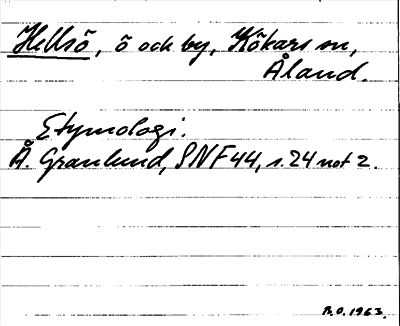 Hellsö, ö och by, Kökars sn,
Åland.
Etymologi.
Å. Granlund, SNF 44, s. 24 not 2.
B.O. 1963.